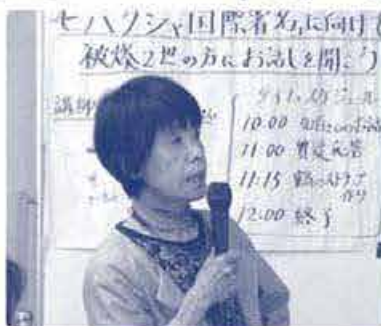 ヒバクシャ国際署名に向けて
被爆2世の方にお話しを聞こう
講師
タイムスケジュール
10:00
11:00 質疑応答
11:15 作り
12:00 終了